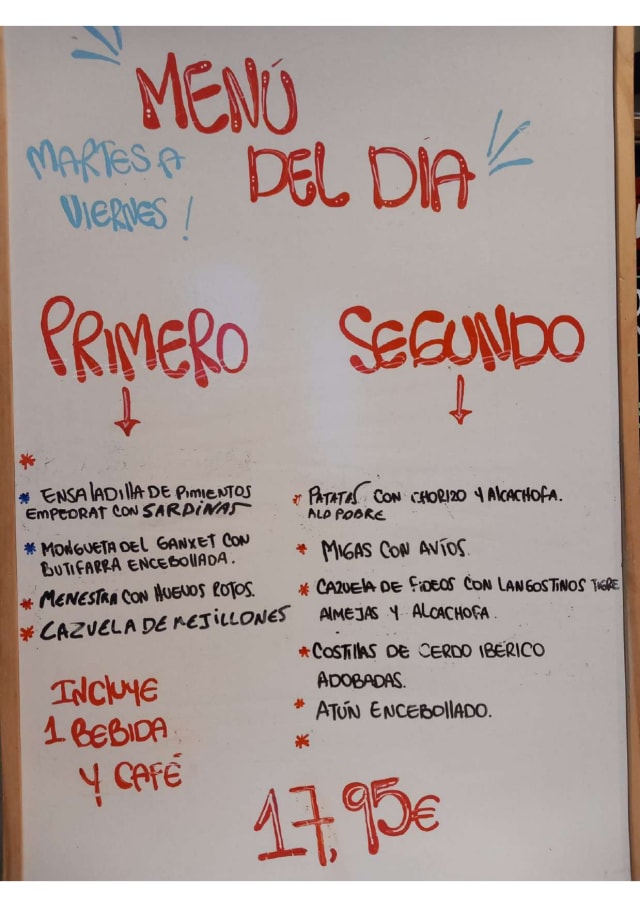 MENÚ
DEL DIA
MARTES A
VIERNES!
PRIMERO
* 
* ENSALADILLA DE PIMIENTOS
EMPEDRAT CON SARDINAS
* MONGUETA DEL GANXET CON
BUTIFARRA ENCEBOLLADA.
* MENESTRA CON HUEVOS ROTOS.
* CAZUELA DE MEJILLONES
INCLUYE
1 BEBIDA
Y CAFÉ
SEGUNDO
* PATATAS CON CHORIZO Y ALCACHOFA.
ALO POBRE
* MIGAS CON AVÍOS.
* CAZUELA DE FIDEOS CON LANGOSTINOS TIGRE
ALMEJAS Y ALCACHOFA.
* COSTILLAS DE CERDO IBÉRICO
ADOBADAS.
* ATÚN ENCEBOLLADO.
*
17,95€